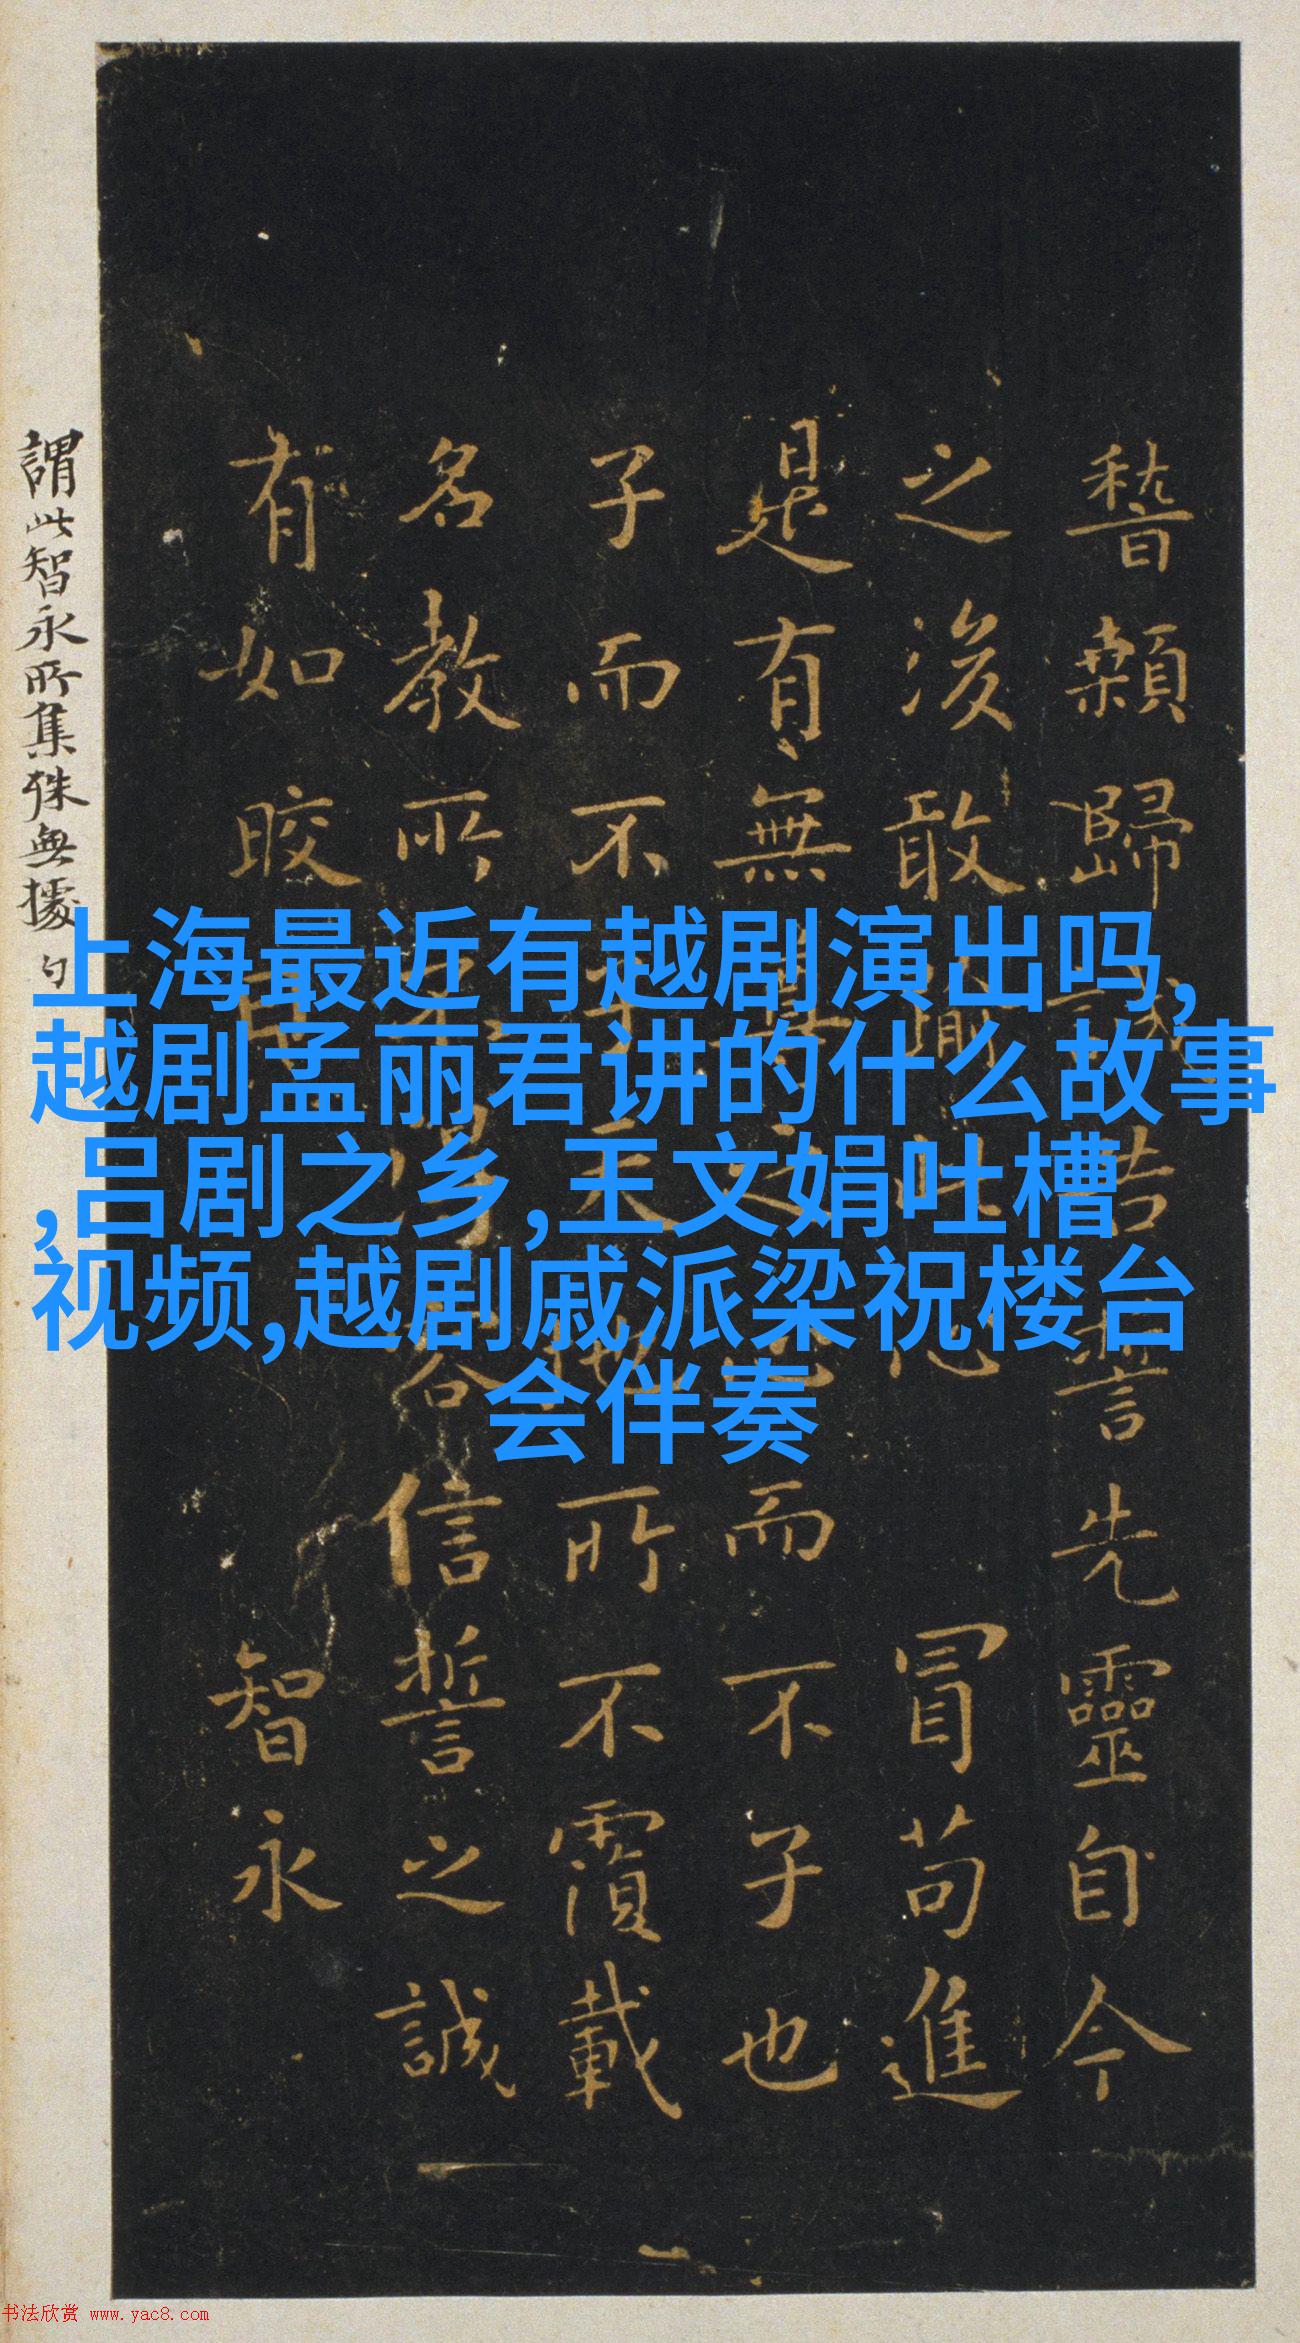 稽顙歸誠告誓先靈自今
之後敢渝此心 冒苟進
是有無尊之心而不子也
子而不子天地所不覆載
名教所不得容信誓之誠
有如皎日 智永
謂此智永所集殊無據
上海最近有越剧演出吗,
越剧孟丽君讲的什么故事
,吕剧之乡,王文娟吐槽
视频,越剧戚派梁祝楼台
会伴奏
书法欣赏 www.yac8.com